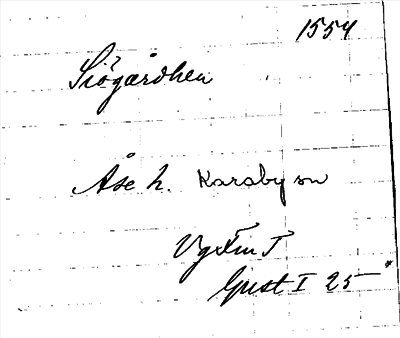 1554
Siögårdhen
Åse h. Karaby sn
Vg Fru T
Gust I 25